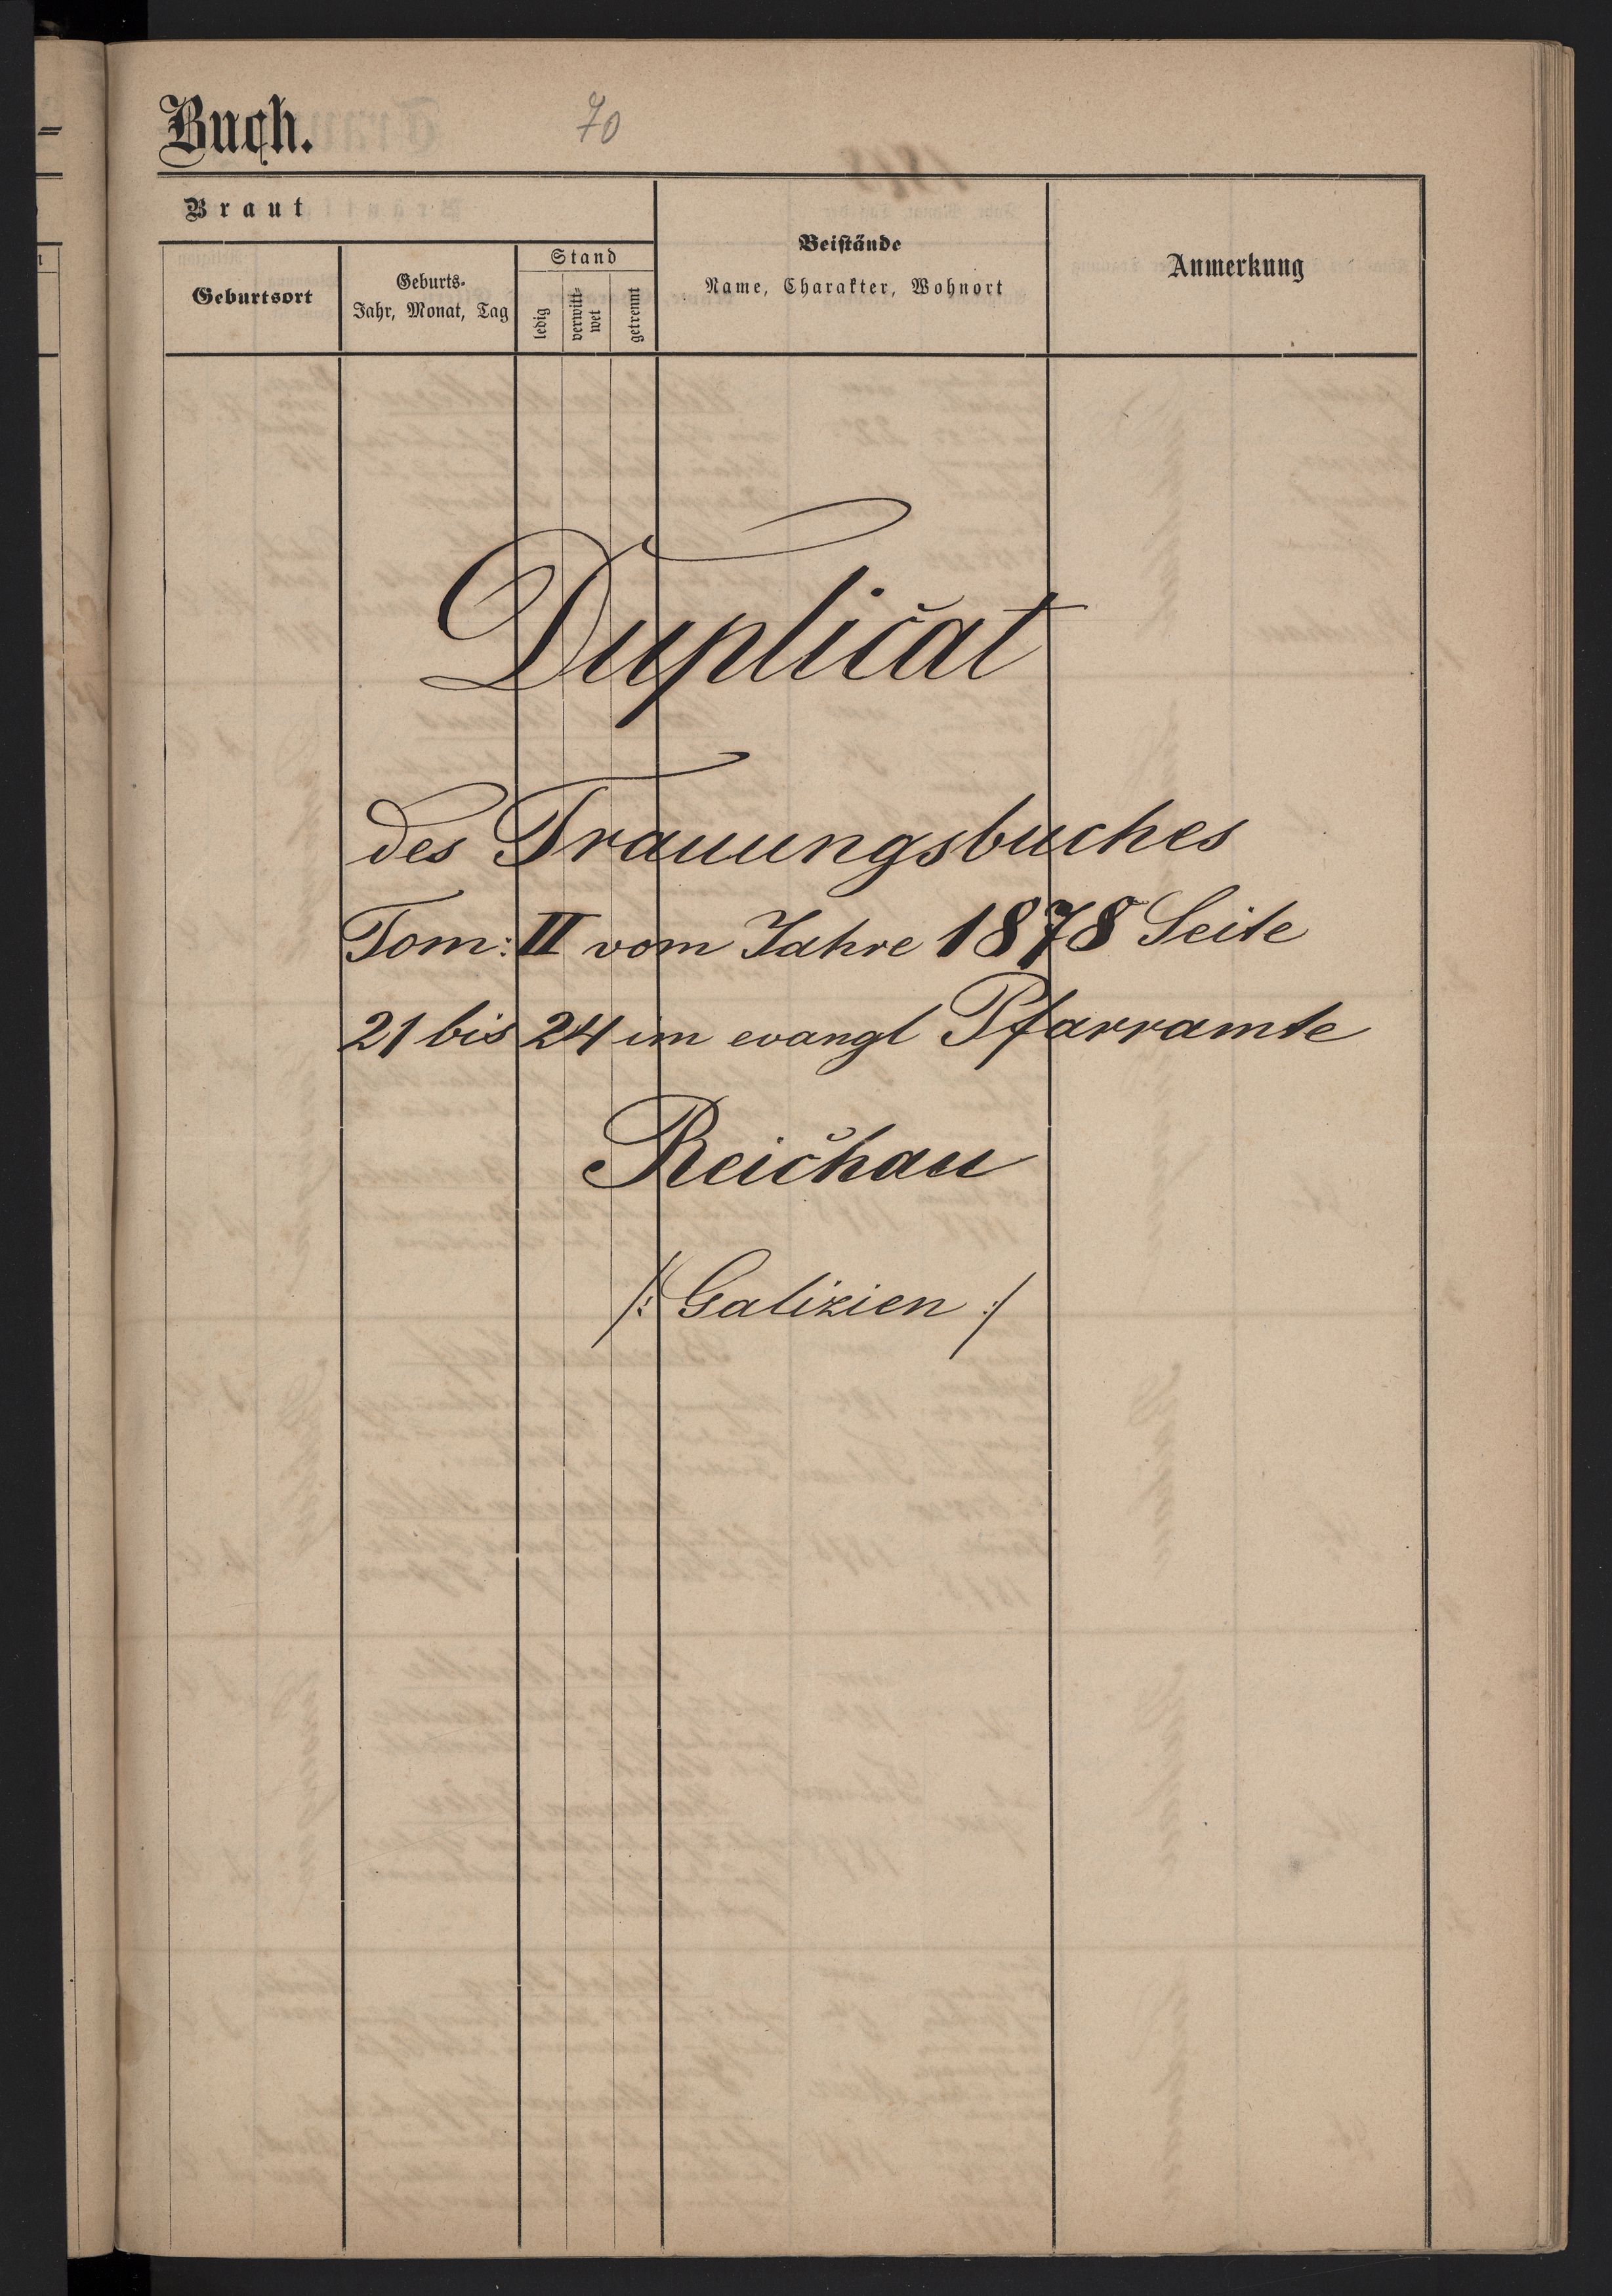 Buch.
70
Braut
Geburtsort
Geburts-
Jahr, Monat, Tag
Stand
ledig
verwitt-
wet
getrennt
Beistände
Name, Charakter, Wohnort
Anmerkung
Duplicat
des Trauungsbuches
Tom: II vom Jahre 1878 Seite
21 bis 24 im evangl Pfarramte
Reichau
/: Galizien :/